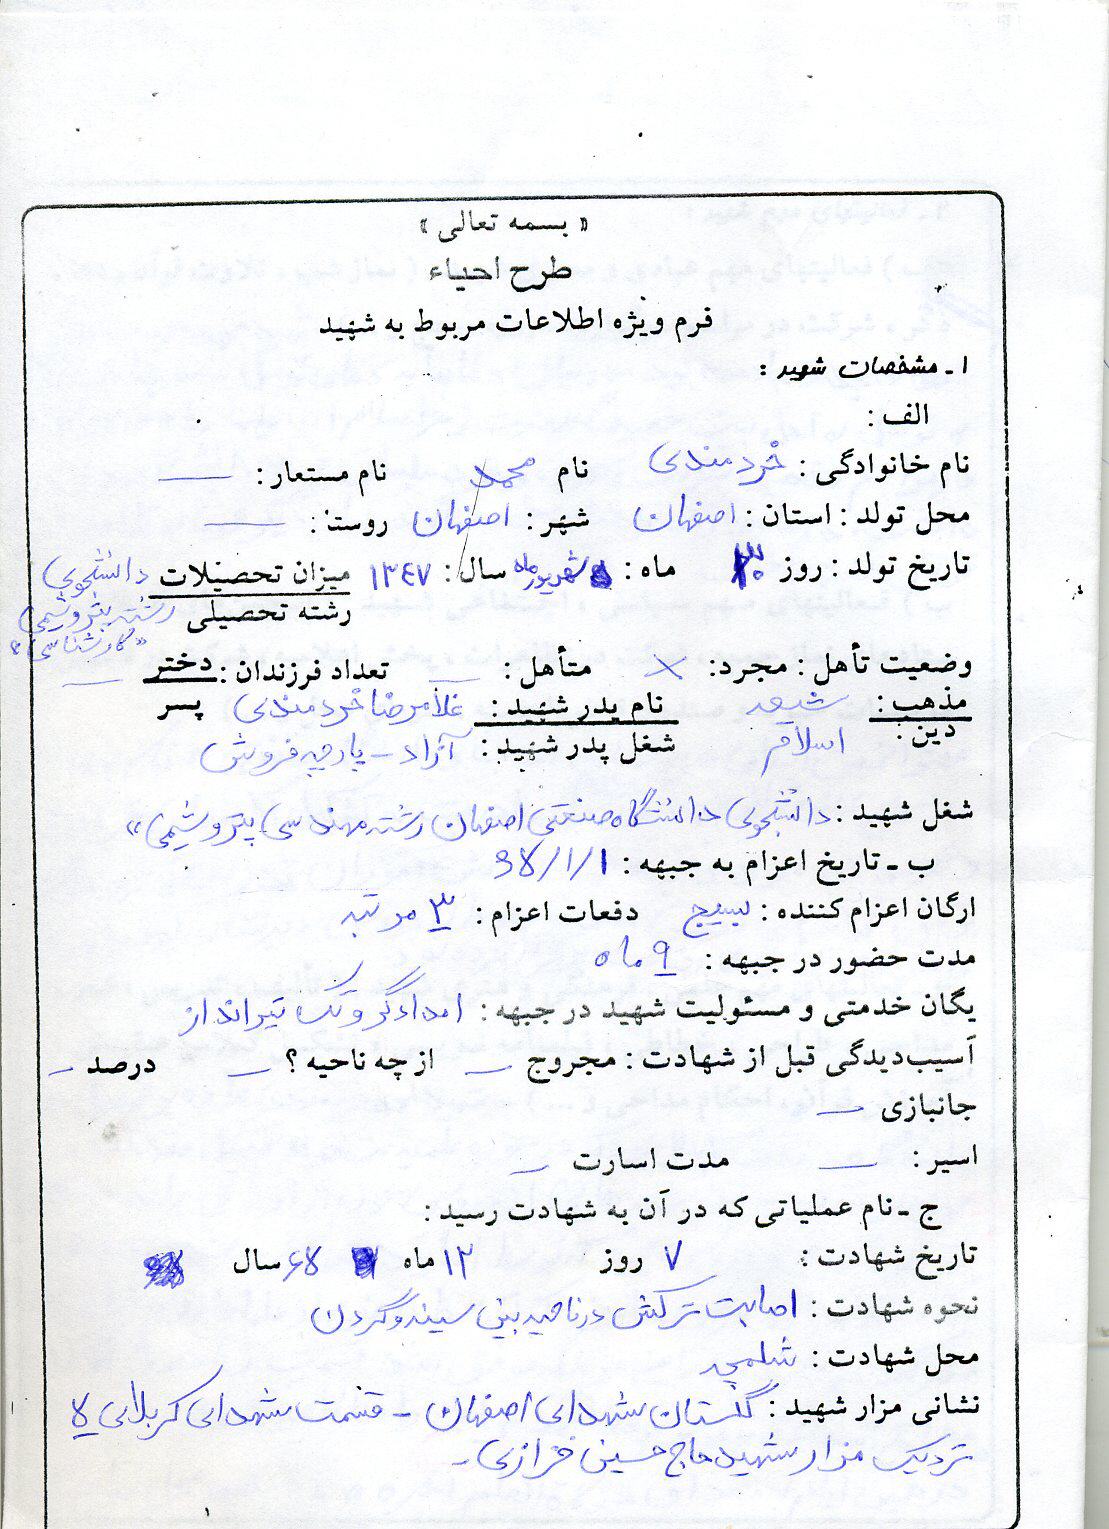 « بسمه تعالی »
طرح احیاء
فرم ویژه اطلاعات مربوط به شهید
۱ ـ مشخصات شهید :
الف :
نام خانوادگی : خردمندی نام محمد نام مستعار : ــ
محل تولد : استان : اصفهان شهر : اصفهان روستا : ــ
تاریخ تولد : روز ۳۰ ماه : شهریور ماه سال : ۱۳۴۷ میزان تحصیلات دانشجوی
رشته تحصیلی رشته پتروشیمی
«کارشناسی»
وضعیت تأهل : مجرد : × متأهل : ــ تعداد فرزندان : دختر ــ
مذهب : شیعه نام پدر شهید : غلامرضا خردمندی پسر
دین : اسلام شغل پدر شهید : آزاد - پارچه فروش
شغل شهید : دانشجوی دانشگاه صنعتی اصفهان رشته مهندسی پتروشیمی »
ب ـ تاریخ اعزام به جبهه : ۶۵/۱/۱
ارگان اعزام کننده : بسیج دفعات اعزام : ۳ مرتبه
مدت حضور در جبهه : ۹ ماه
یگان خدمتی و مسئولیت شهید در جبهه : امدادگر و تک تیرانداز
آسیب‌دیدگی قبل از شهادت : مجروح ــ از چه ناحیه ؟ ــ درصد ــ
جانبازی ــ
اسیر : ــ مدت اسارت ــ
ج ـ نام عملیاتی که در آن به شهادت رسید :
تاریخ شهادت : ۷ روز ۱۲ ماه ۶۵ سال
نحوه شهادت : اصابت ترکش در ناحیه بینی سینه و گردن
محل شهادت : شلمچه
نشانی مزار شهید : گلستان شهدای اصفهان - قسمت شهدای کربلای ۵
نزدیک مزار شهید حاج حسین خرازی -
۱